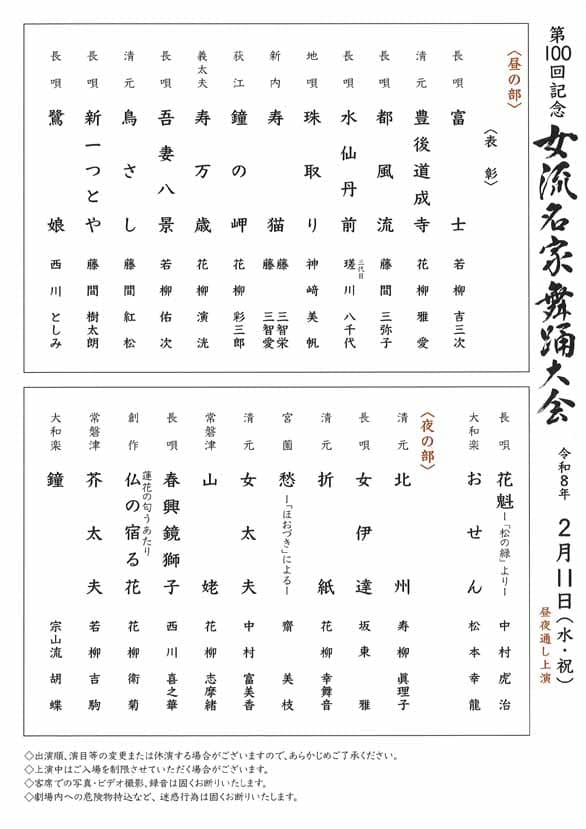 第100回記念 女流名家舞踊大会 令和8年 2月11日(水・祝)
昼夜通し上演
〈昼の部〉
〈表彰〉
長唄 富士 若柳吉三次
清元 豊後道成寺 花柳雅愛
長唄 都風流 藤間三弥子
長唄 水仙丹前 二代目 瑳川八千代
地唄 珠取り 神﨑美帆
新内 寿猫 藤三智栄 藤三智愛
荻江 鐘の岬 花柳彩三郎
義太夫 寿万歳 花柳演洸
長唄 吾妻八景 若柳佑次
清元 鳥さし 藤間紅松
長唄 新一つとや 藤間樹太朗
長唄 鷺娘 西川としみ
長唄 花魁―「松の緑」より― 中村虎治
大和楽 おせん 松本幸龍
〈夜の部〉
清元 北州 寿柳眞理子
長唄 女伊達 坂東雅
清元 折紙 花柳幸舞音
宮薗 愁―「ほおづき」による― 齋美枝
清元 女太夫 中村富美香
常磐津 山姥 花柳志摩緒
長唄 春興鏡獅子 西川喜之華
創作 蓮花の匂うあたり 仏の宿る花 花柳衛菊
常磐津 芥太夫 若柳吉駒
大和楽 鐘 宗山流胡蝶
◇出演順、演目等の変更または休演する場合がございますので、あらかじめご了承ください。
◇上演中はご入場を制限させていただく場合がございます。
◇客席での写真・ビデオ撮影、録音は固くお断りいたします。
◇劇場内への危険物持込など、迷惑行為は固くお断りいたします。